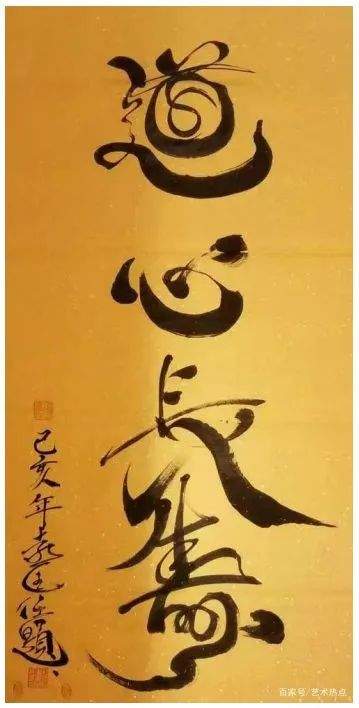 道心長壽
己亥年題
百家号/艺术热点